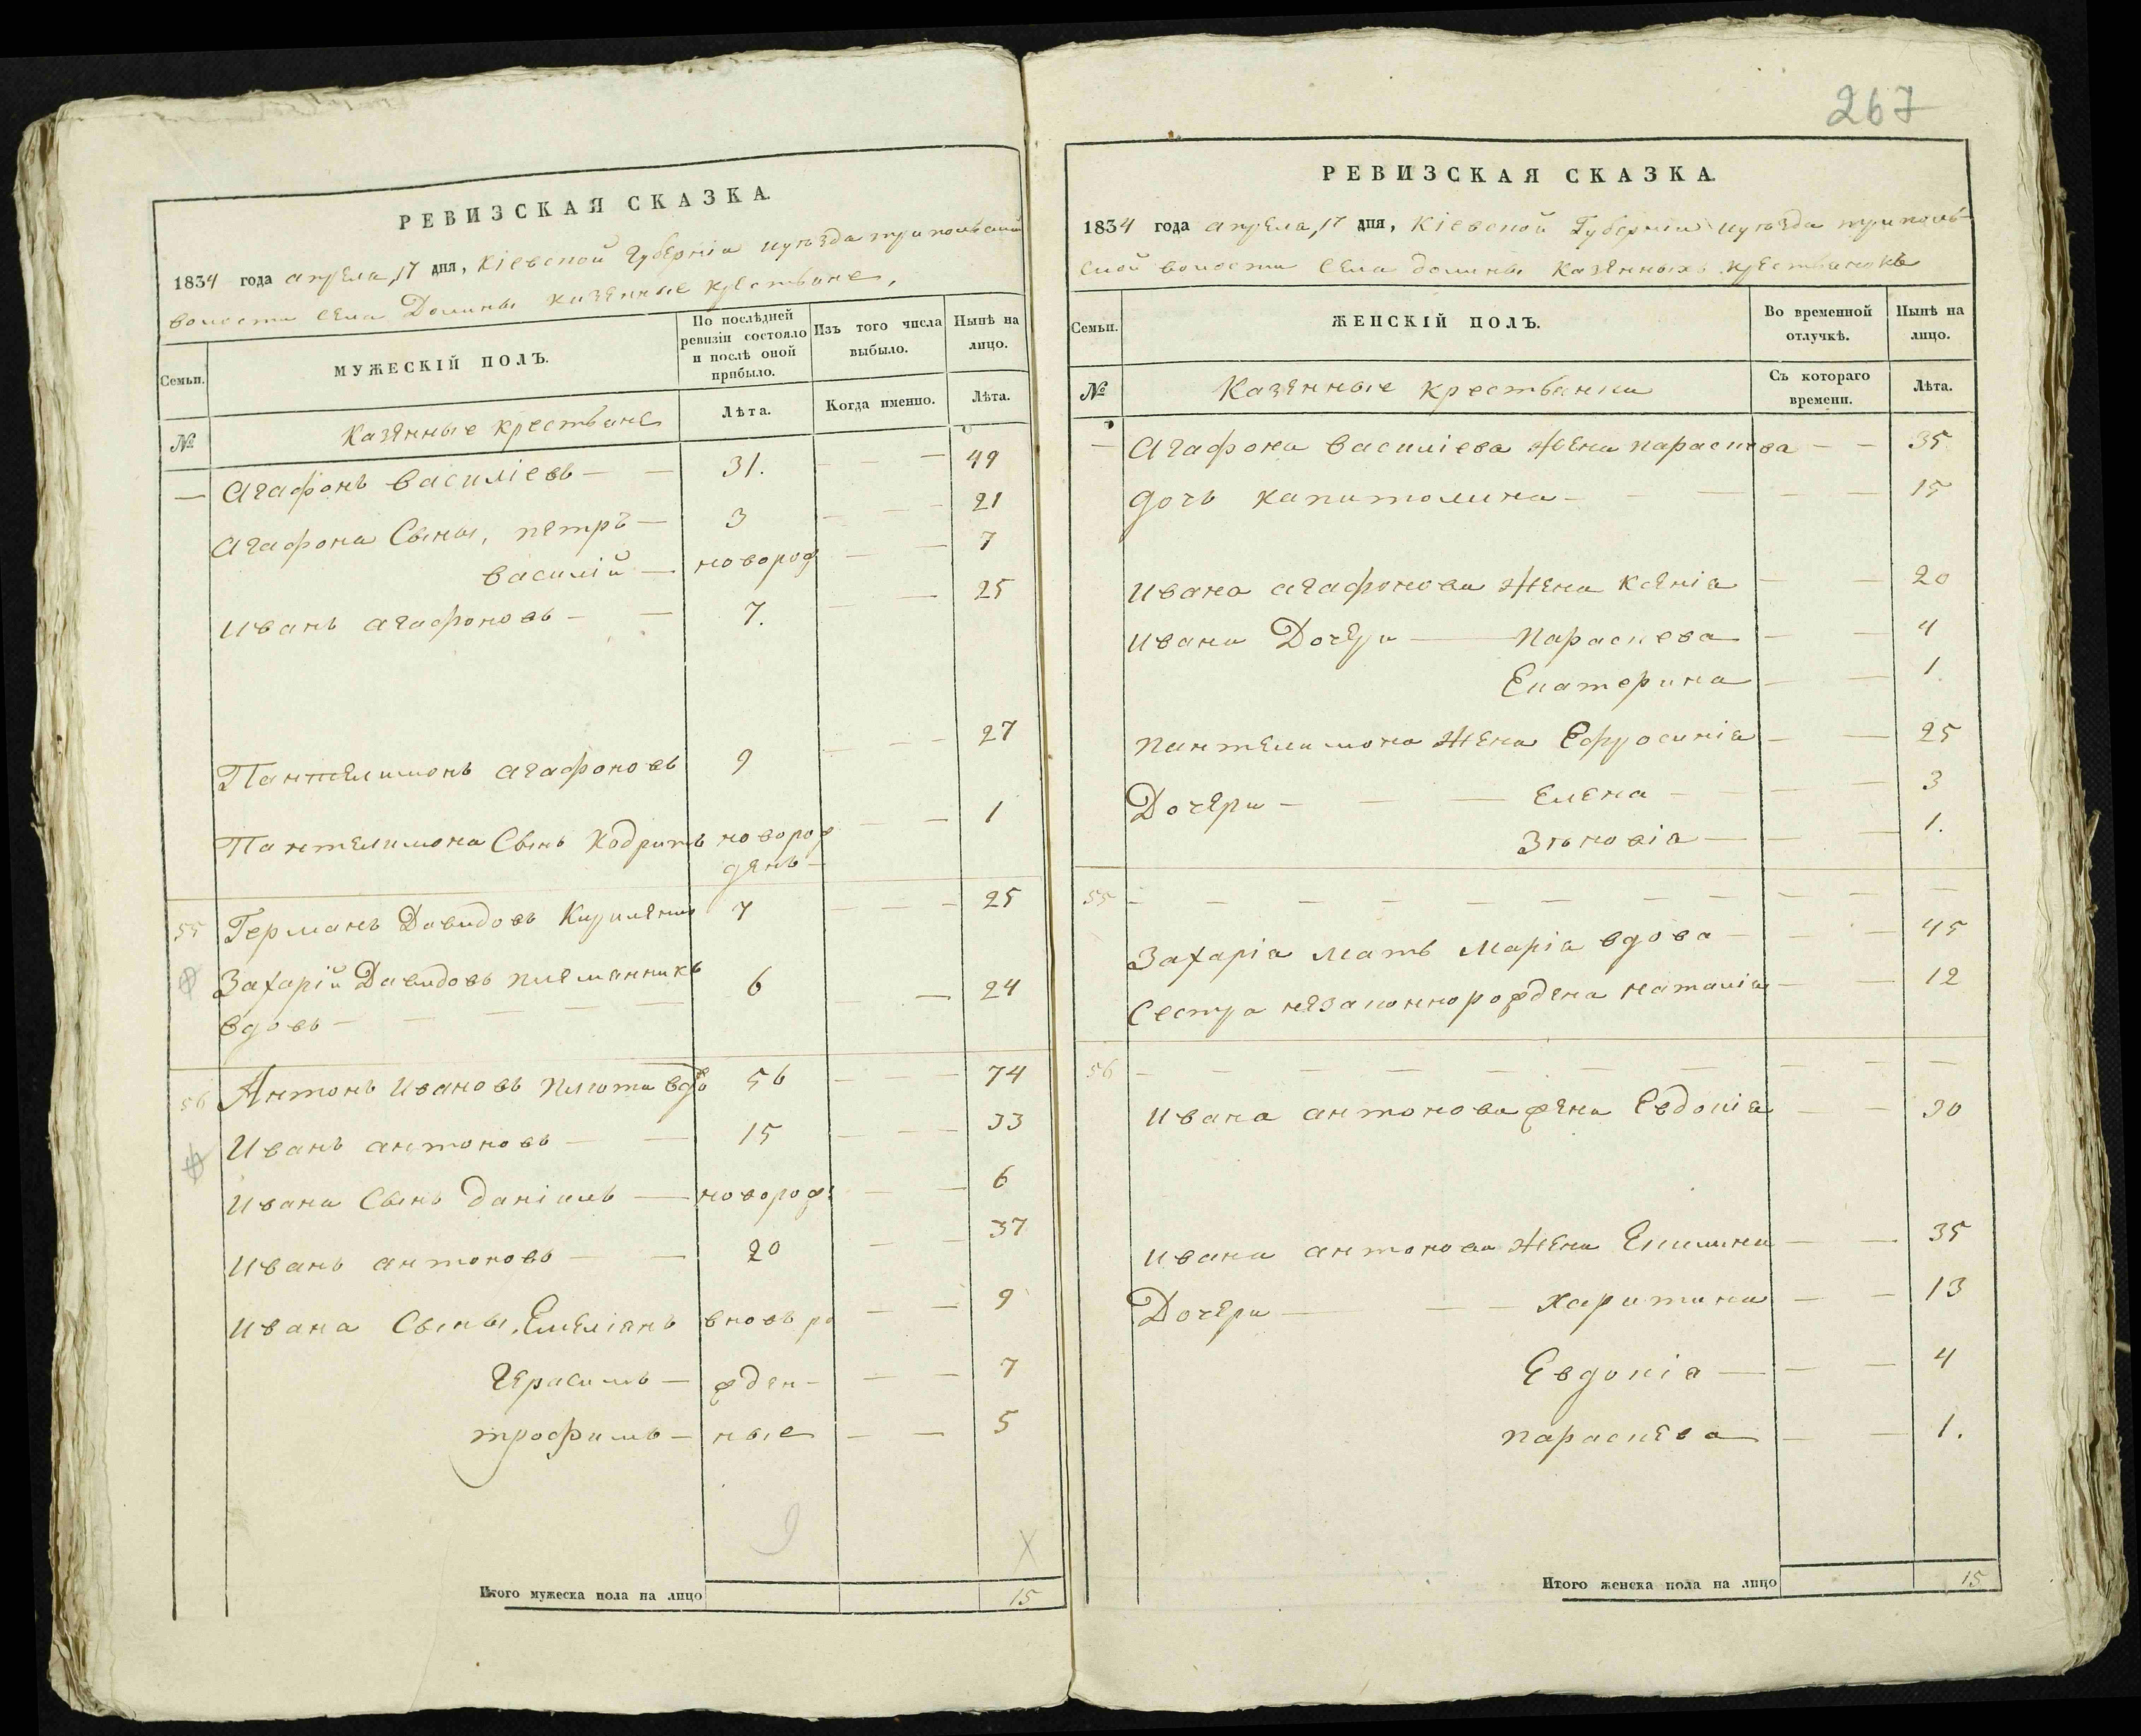 267
РЕВИЗСКАЯ СКАЗКА.
1834 года апрѣла, 17 дня, Кіевской Губерніи и уѣзда трипольской
волости села Долины казенные крестьяне,
Семьи.
МУЖЕСКІЙ ПОЛЪ.
По послѣдней ревизіи состояло и послѣ оной прибыло.
Изъ того числа выбыло.
Нынѣ на лицо.
№
Казенные крестьяне
Лѣта.
Когда именно.
Лѣта.
— Агафонъ Василіевъ — — 31. — — — 49
Агафона Сыны, петръ — 3 — — — 21
Василій — новорож — — 7
Иванъ агафоновъ — — 7. — — 25
Пантелимонъ агафоновъ 9 — — — 27
Пантелимона Сынъ новорож — — 1
денъ —
55 Германъ Давидовъ 7 — — — 25
Захарій Давидовъ племянникъ 6 — 24
вдовъ — — — — —
56 Антонъ Ивановъ Плюта вдо 56 — — — 74
Иванъ антоновъ — — 15 — — — 33
Ивана Сынъ Даніилъ — новорож: — — 6
Иванъ антоновъ — — 20 — — 37
Ивана Сыны, Емеліянъ вновь ро — — 9
Герасимъ — жден- — — 7
трофимъ — ные — — 5
9
Х
Итого мужеска пола на лицо 15
РЕВИЗСКАЯ СКАЗКА.
1834 года апрѣла, 17 дня, Кіевской Губерніи и уѣзда триполь-
ской волости села долины казенныхъ крестьянокъ
Семьи.
ЖЕНСКІЙ ПОЛЪ.
Во временной отлучкѣ.
Нынѣ на лицо.
№
Казенные крестьянки
Съ котораго времени.
Лѣта.
— Агафона Василіева Жена параскева — — 35
дочь капитолина — — — — — 15
Ивана агафонова Жена Ксенія — — 20
Ивана Дочери — Параскева — — 4
Екатерина — — 1.
пантелимона Жена Ефросинія — — 25
Дочери — — — Елена — — — 3
Зѣновія — — — 1.
55 — — — — — — — — — — —
Захаріа мать Маріа вдова — — — 45
Сестра незаконнорождена наталіа — — 12
56 — — — — — — — — — — —
Ивана антонова жена Евдокіа — — 30
Ивана антонова Жена Акилина — — 35
Дочери — — — харитина — — 13
Евдокіа — — — 4
параскева — — 1.
Итого женска пола на лицо 15